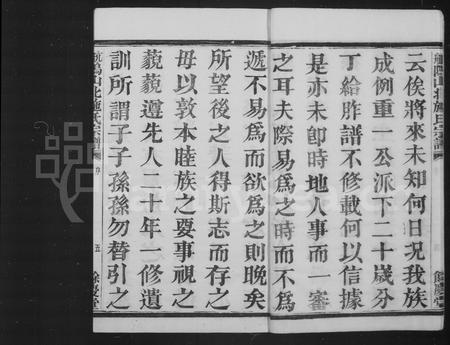 云俟將來未知何日況我族
成例重一公派下二十歲分
丁給胙譜不修載何以信據
是亦未卽時地人事而一審
之耳夫際易爲之時而不爲
遞不易爲而欲爲之則晚矣
所望後之人得斯志而存之
毋以敦本睦族之要事視之
藐藐遵先人二十年一修遺
訓所謂子子孫孫勿替引之
山北施氏宗譜
五
餘慶堂